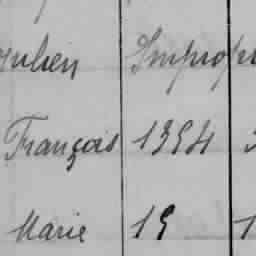 Julien Impropr
François 1894
Marie 19 1